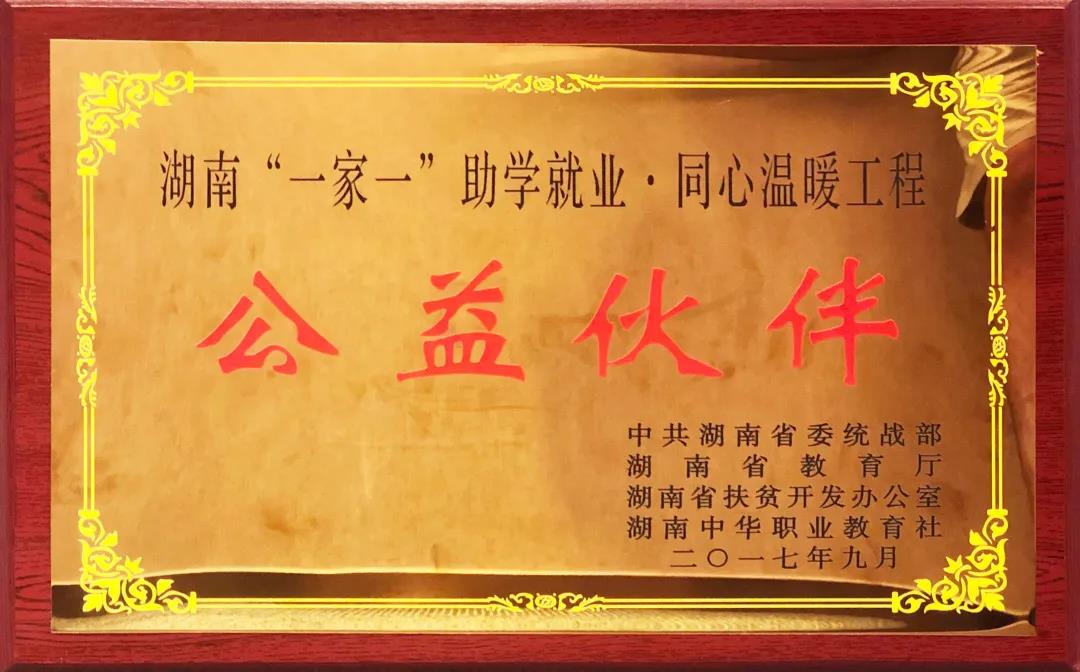 湖南“一家一”助学就业·同心温暖工程
公益伙伴
中共湖南省委统战部
湖南省教育厅
湖南省扶贫开发办公室
湖南中华职业教育社
二〇一七年九月